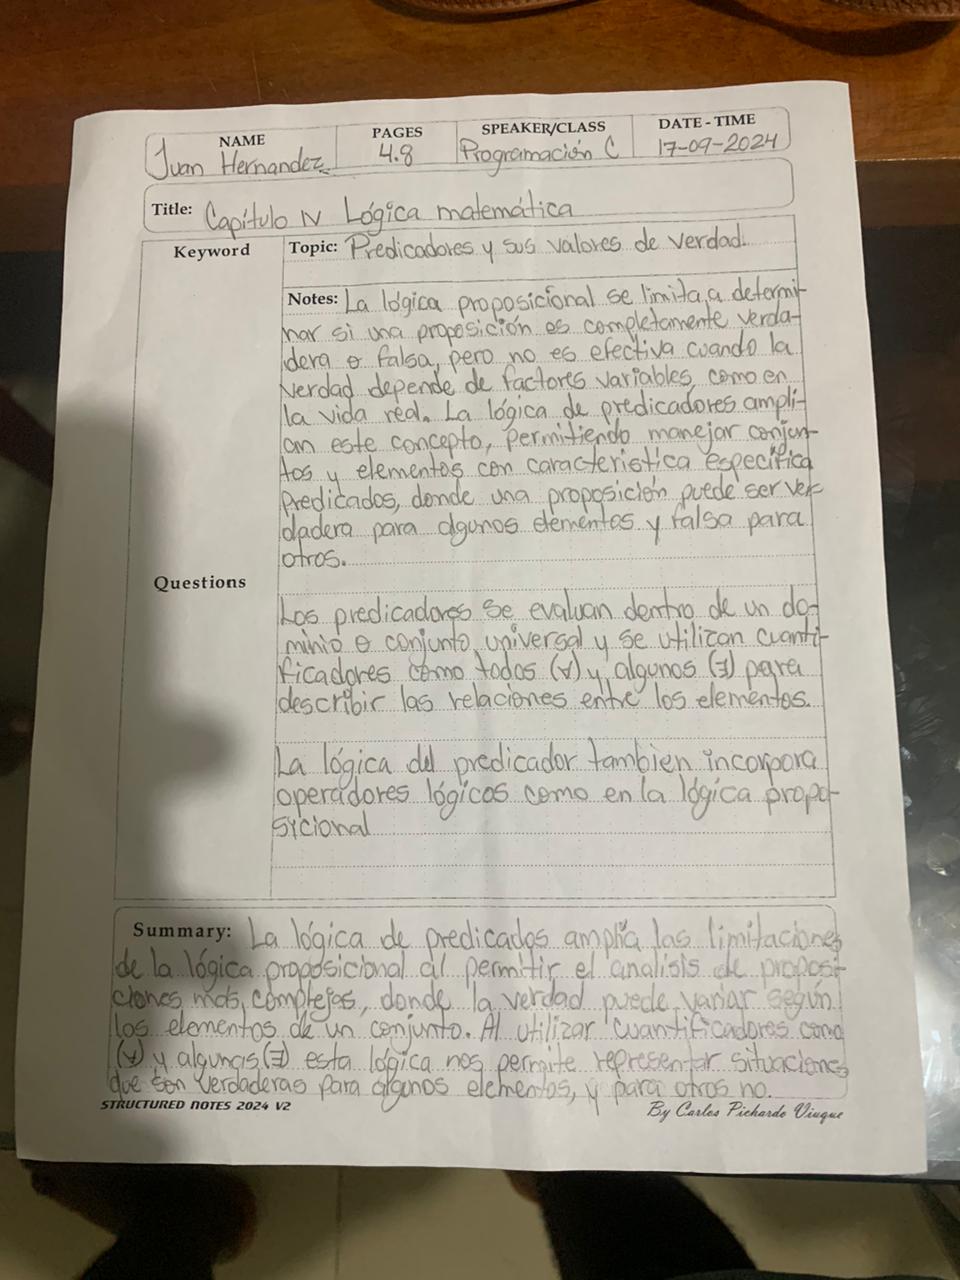 NAME
PAGES
SPEAKER/CLASS
DATE - TIME
Juan Hernandez
4.8
Programación C
17-09-2024
Title: Capítulo IV Lógica matemática
Keyword
Topic: Predicadores y sus valores de verdad.
Notes: La lógica proposicional se limita a determi-
nar si una proposición es completamente verda-
dera o falsa, pero no es efectiva cuando la
verdad depende de factores variables, como en
la vida real. La lógica de predicadores ampli-
an este concepto, permitiendo manejar conjun-
tos y elementos con caracteristica específica
Predicados, donde una proposición puede ser ver-
dadera para algunos elementos y falsa para
otros.
Questions
Los predicadores se evaluan dentro de un do-
minio o conjunto universal y se utilizan cuanti-
ficadores como todos (∀) y algunos (∃) para
describir las relaciones entre los elementos.
La lógica del predicador tambien incorpora
operadores lógicos como en la lógica propo-
sicional
Summary: La lógica de predicados amplía las limitaciones
de la lógica proposicional al permitir el analisis de proposi-
ciones mas complejas, donde la verdad puede variar según
los elementos de un conjunto. Al utilizar cuantificadores como
(∀) y algunas (∃) esta lógica nos permite representar situaciones
que son verdaderas para algunos elementos, y para otros no.
STRUCTURED NOTES 2024 V2
By Carlos Pichardo Viuque